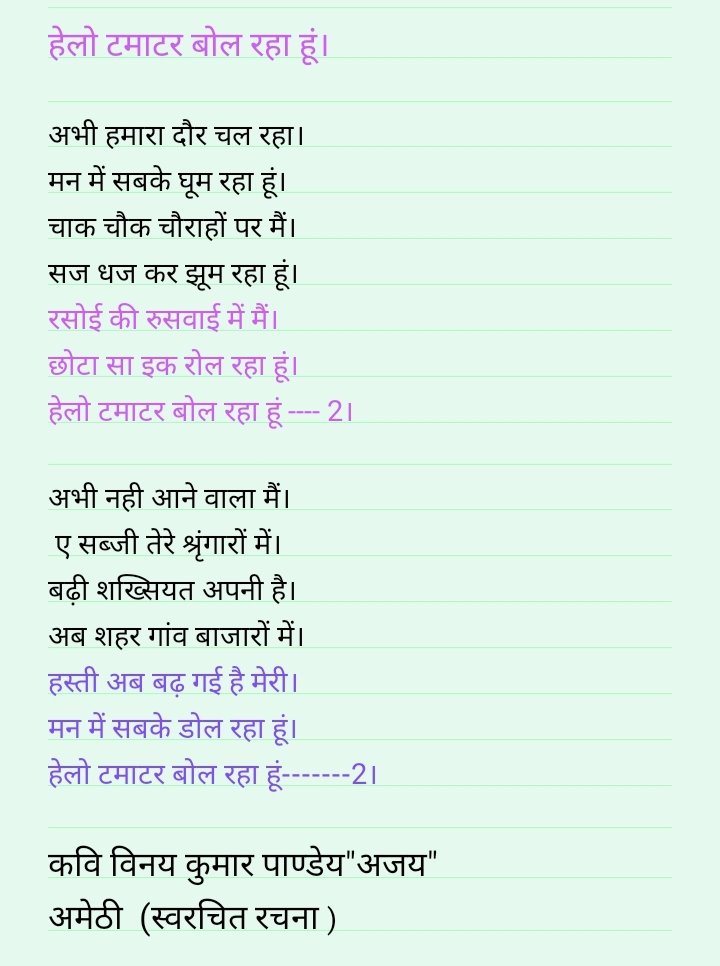 हेलो टमाटर बोल रहा हूं।
अभी हमारा दौर चल रहा।
मन में सबके घूम रहा हूं।
चाक चौक चौराहों पर मैं।
सज धज कर झूम रहा हूं।
रसोई की रुसवाई में मैं।
छोटा सा इक रोल रहा हूं।
हेलो टमाटर बोल रहा हूं ---- 2।
अभी नही आने वाला मैं।
ए सब्जी तेरे श्रृंगारों में।
बढ़ी शख्सियत अपनी है।
अब शहर गांव बाजारों में।
हस्ती अब बढ़ गई है मेरी।
मन में सबके डोल रहा हूं।
हेलो टमाटर बोल रहा हूं-------2।
कवि विनय कुमार पाण्डेय"अजय"
अमेठी (स्वरचित रचना )